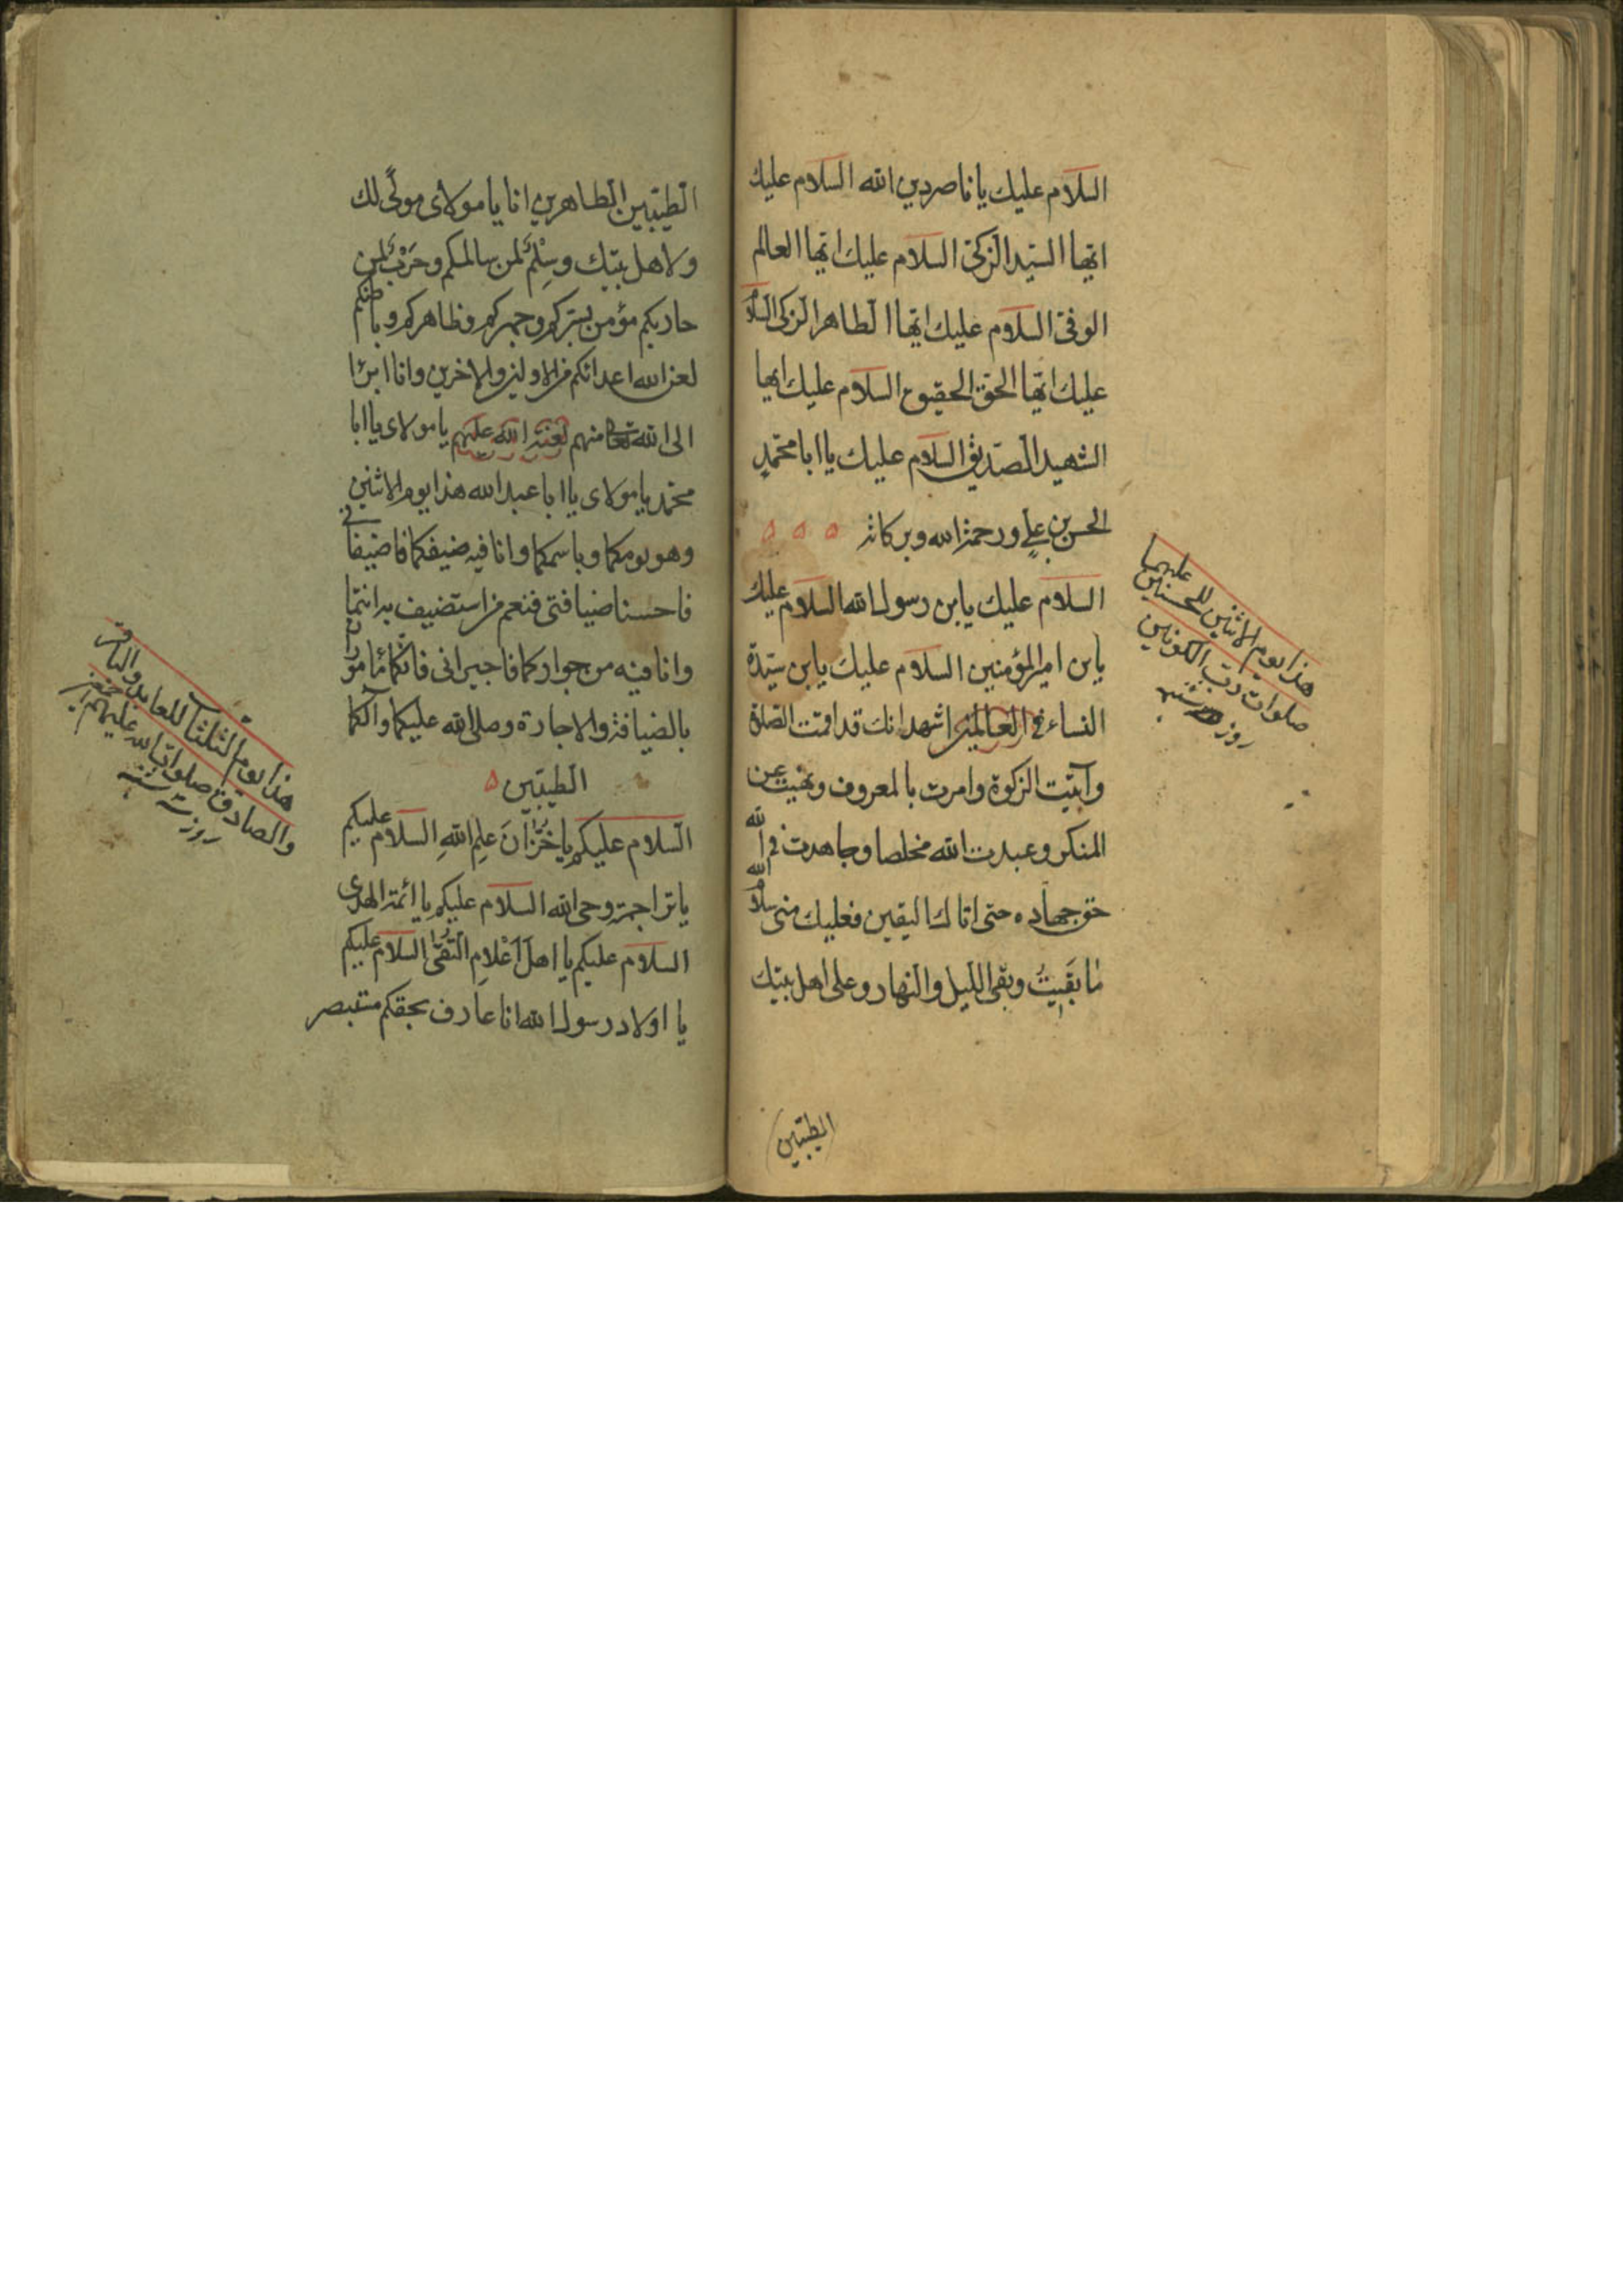 السلام عليك يا ناصر دين الله السلام عليك
ايها السيد الزكى السلام عليك ايها العالم
الوفى السلام عليك ايها الطاهر الزكى السلام
عليك ايها الحق الحقيق السلام عليك ايها
الشهيد الصديق السلام عليك يا ابا محمد
الحسن بن على ورحمة الله وبركاته
السلام عليك يابن رسول الله السلام عليك
يابن امير المؤمنين السلام عليك يابن سيدة
النساء فى العالمين اشهد انك قد اقمت الصلوة
وآتيت الزكوة وامرت بالمعروف ونهيت عن
المنكر وعبدت الله مخلصا وجاهدت فى الله
حق جهاده حتى اتاك اليقين فعليك منى سلام الله
ما بقيت وبقى الليل والنهار وعلى اهل بيتك
الطيبين
هذا يوم الاثنين للحسنين عليهما
صلوات رب الكونين
روز دوشنبه
الطيبين الطاهرين انا يا مولاى مولى لك
ولاهل بيتك وسلم لمن سالمكم وحرب لمن
حاربكم مؤمن بسركم وجهركم وظاهركم وباطنكم
لعن الله اعدائكم من الاولين والاخرين وانا ابرئا
الى الله تعا منهم لعنة الله عليهم يا مولاى يا ابا
محمد يا مولاى يا ابا عبد الله هذا يوم الاثنين
وهو يومكما وباسمكما وانا فيه ضيفكما فاضيفانى
فاحسنا ضيافتى فنعم من استضيف به انتما
وانا فيه من جواركما فاجيرانى فانكما ماموران
بالضيافة والاجارة وصلى الله عليكما وآلكما
الطيبين
السلام عليكم يا خزان علم الله السلام عليكم
يا تراجمة وحى الله السلام عليكم يا ائمة الهدى
السلام عليكم يا اهل اعلام التقى السلام عليكم
يا اولاد رسول الله انا عارف بحقكم مستبصر
هذا يوم الثلثا للعابد والباقر
والصادق صلوات الله عليهم
روز سه شنبه